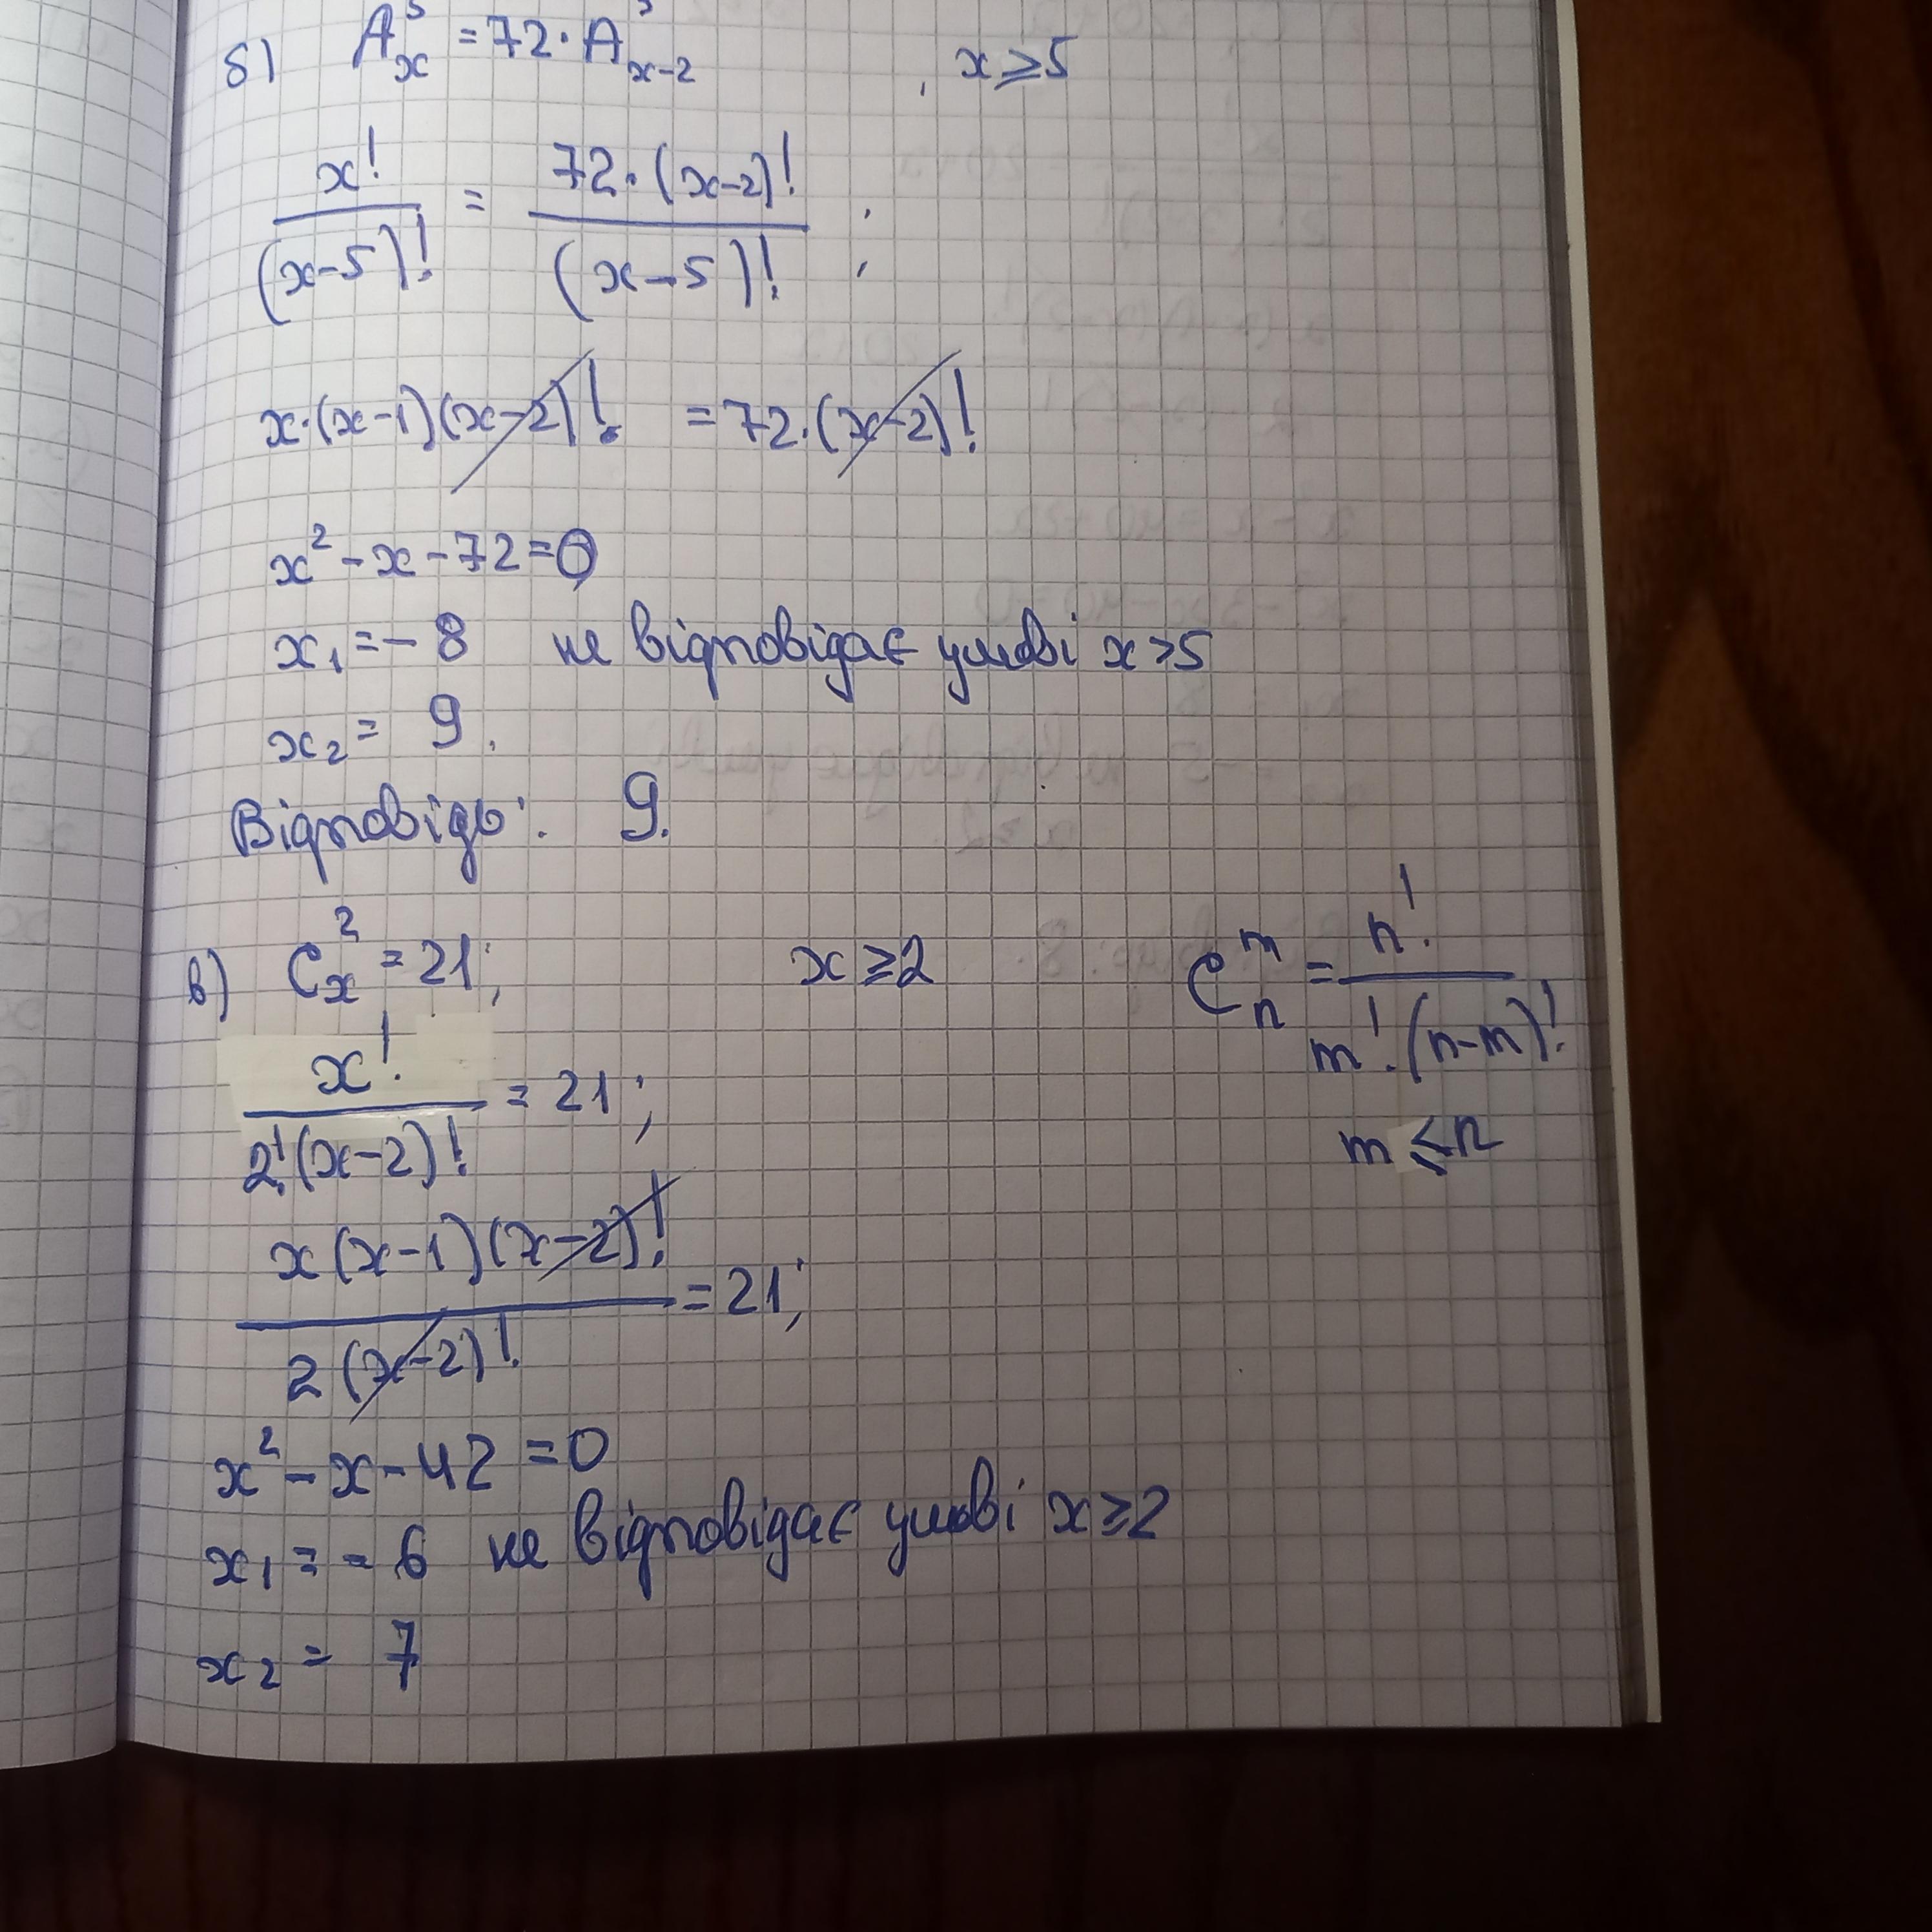 б) A_x^5 = 72 · A_{x-2}^3 , x ⩾ 5
x! / (x-5)! = 72·(x-2)! / (x-5)! ;
x·(x-1)(x-2)! = 72·(x-2)!
x² - x - 72 = 0
x₁ = - 8 не відповідає умові x ⩾ 5
x₂ = 9.
Відповідь: 9.
в) C_x^2 = 21; x ⩾ 2 C_n^m = n! / m!·(n-m)!
x! / 2!(x-2)! = 21; m ⩽ n
x(x-1)(x-2)! / 2(x-2)! = 21;
x² - x - 42 = 0
x₁ = - 6 не відповідає умові x ⩾ 2
x₂ = 7